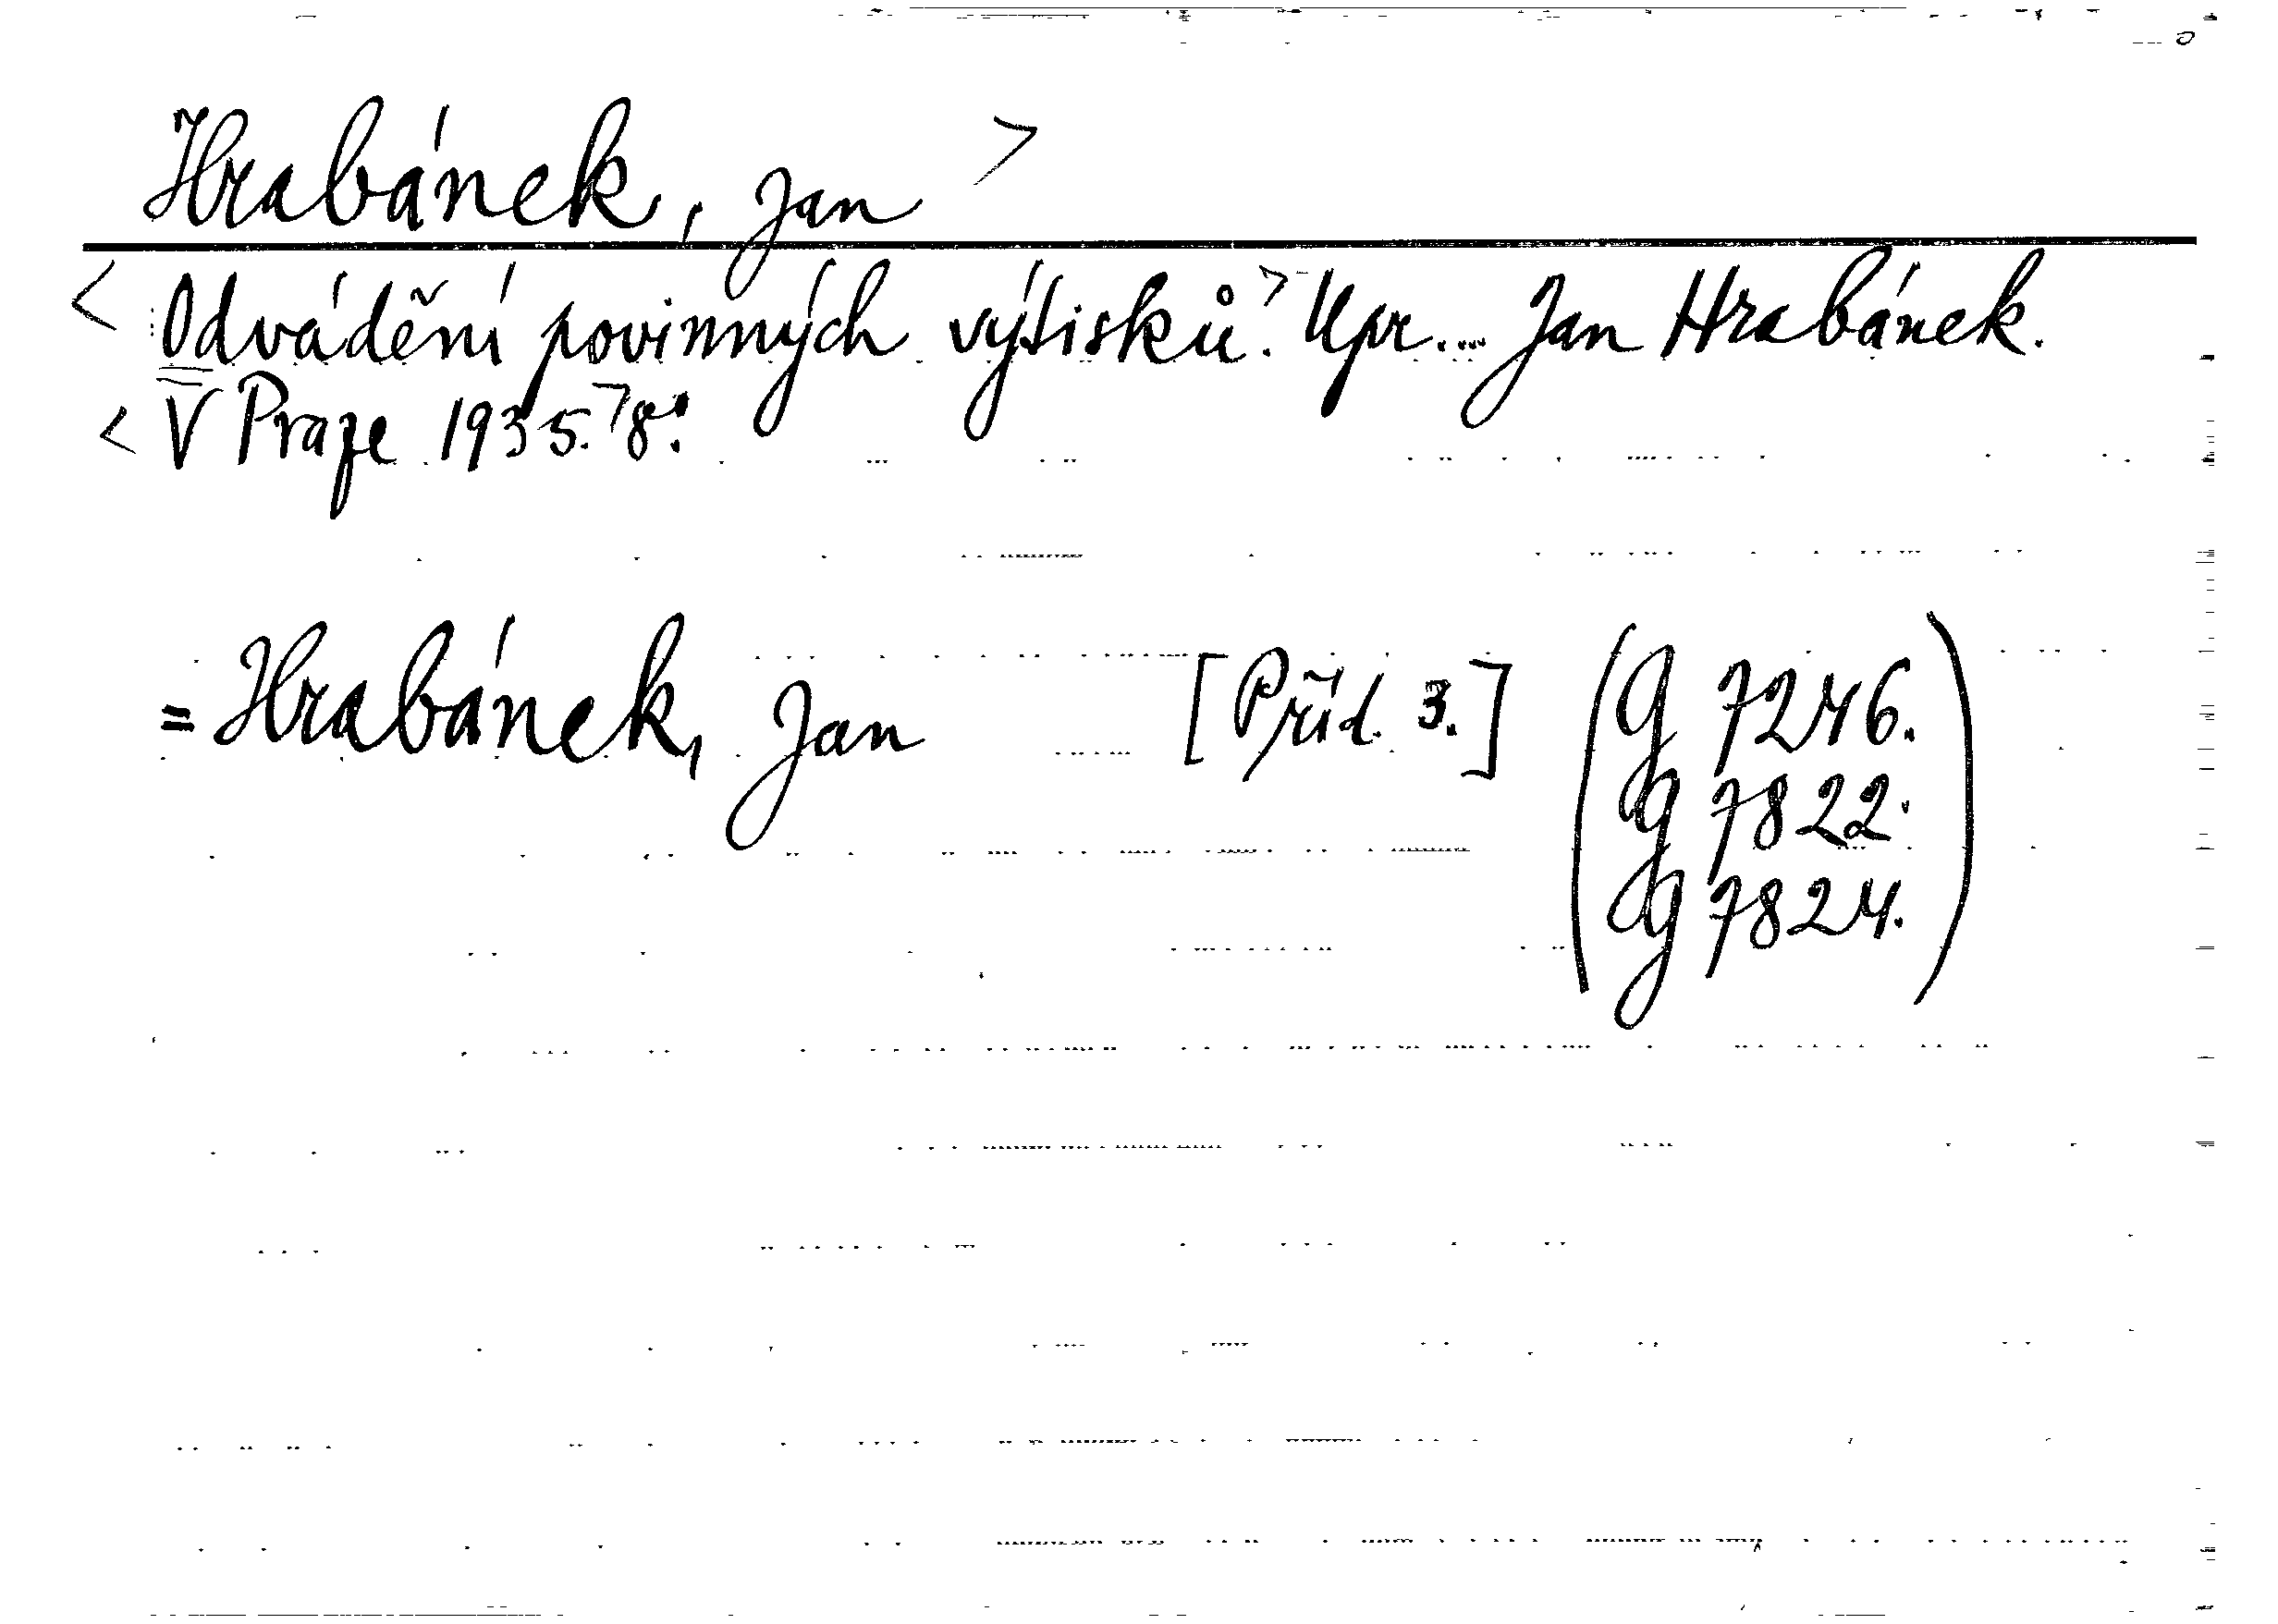 Hrabánek, Jan >
< Odvádění povinných výtisků.> Upr.... Jan Hrabánek.
< V Praze 1935.> 8°.
= Hrabánek, Jan [Příd. 3.] (G 7246.
G 7822.
G 7824.)